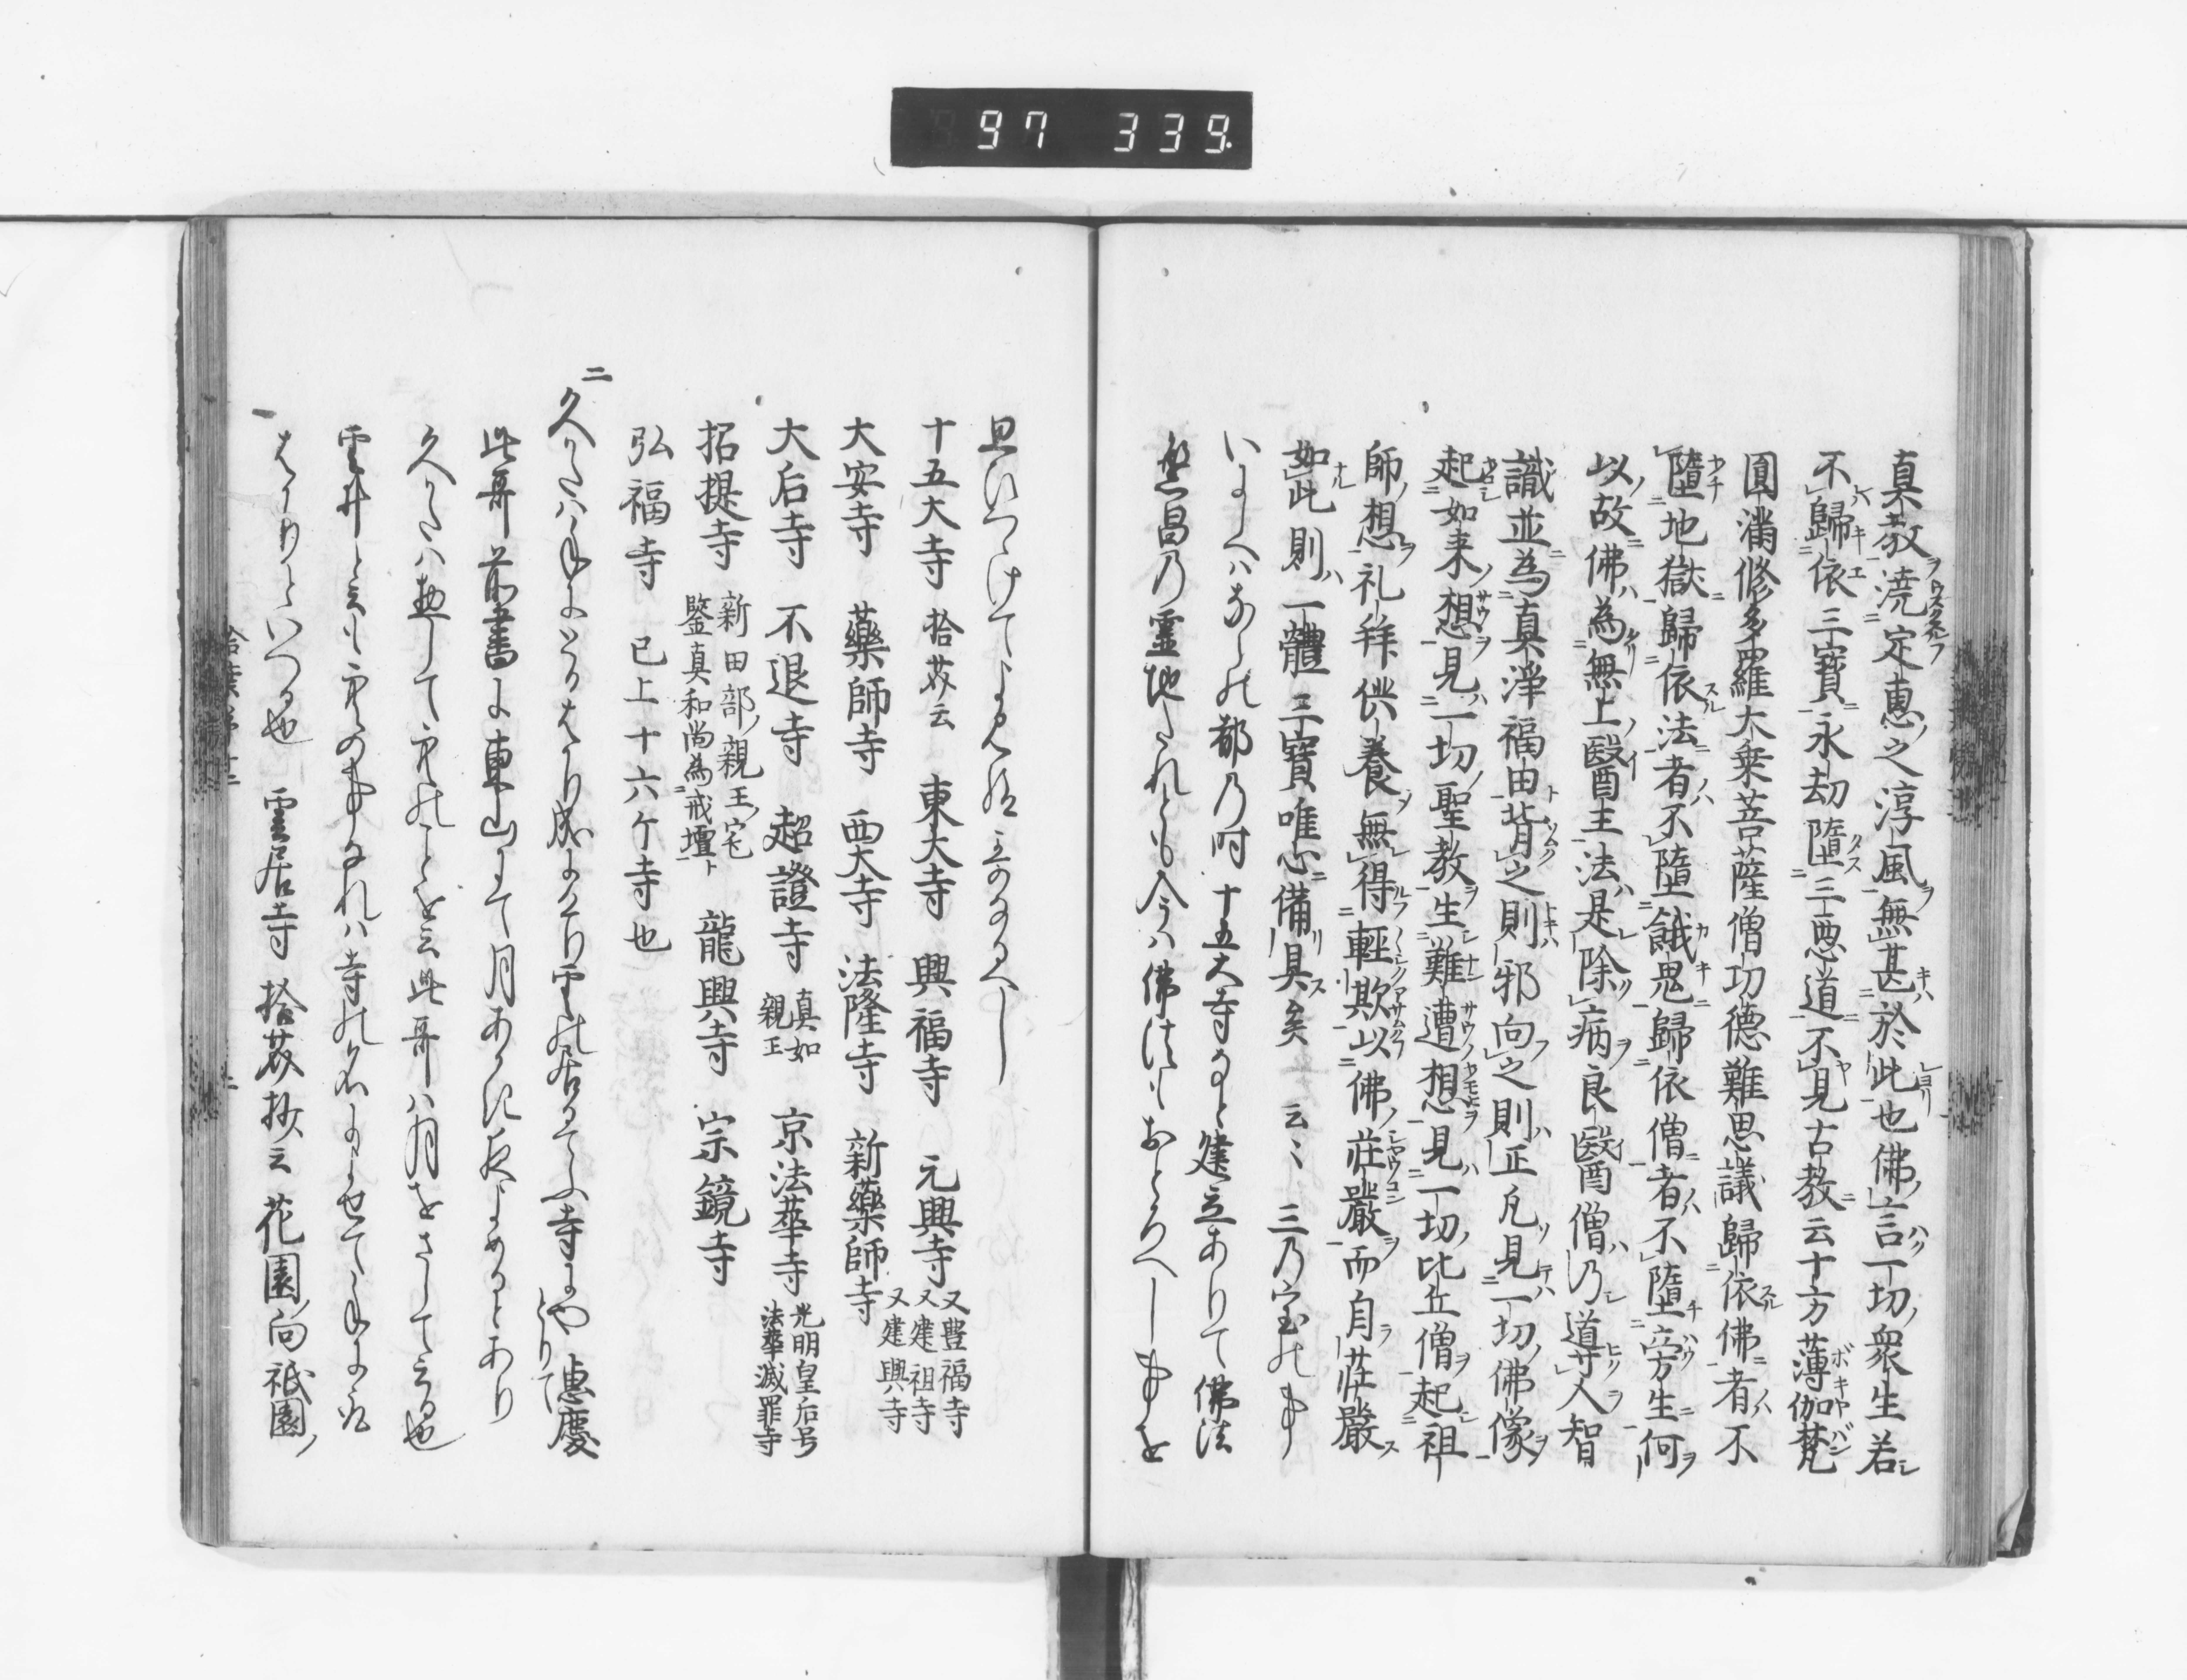 97 339
真教澆定恵之淳風無甚於此也佛言一切衆生若
不歸依三寶永劫墮三悪道不見古教云十方薄伽梵
圓滿修多羅大乗菩薩僧功徳難思議歸依佛者不
墮地獄歸依法者不墮餓鬼歸依僧者不墮旁生何
以故佛為無上醫王法是除病良醫僧乃道寸人智
識並為真淨福田背之則邪向之則正凡見一切佛像
起如来想見一切聖教生難遭想見一切比丘僧起祖
師想礼拜供養無得輕欺以佛莊嚴而自莊嚴
如此則一體三寶唯心備具矣 云〻 三乃宝の事
いにしへはならの都乃时十五大寺なと建立ありて佛法
繁昌乃靈地たれとも今は佛法もおとろへし事を
思ひつゝけてよみ給ふなるへし
十五大寺 拾芥云 東大寺 興福寺 元興寺 又豊福寺 又建祖寺 又建興寺
大安寺 藥師寺 西大寺 法隆寺 新藥師寺
大后寺 不退寺 超證寺 真如親王 京法華寺 光明皇后号法華滅罪寺
招提寺 新田部親王宅 鑒真和尚為戒壇 龍興寺 宗鏡寺
弘福寺 已上十六ケ寺也
二 久かたは手にとるはかり成にけり雲の居るてふ寺にやとりて 惠慶
此哥前書に東山にて月あかき夜よめるとあり
久かたは惣して空のことを云此哥は月をさして云る也
雲井と云も空の事なれは寺の名によせて手に取
はかりといへる也 雲居寺 拾芥抄云 花園向祇園
拾葉第十二